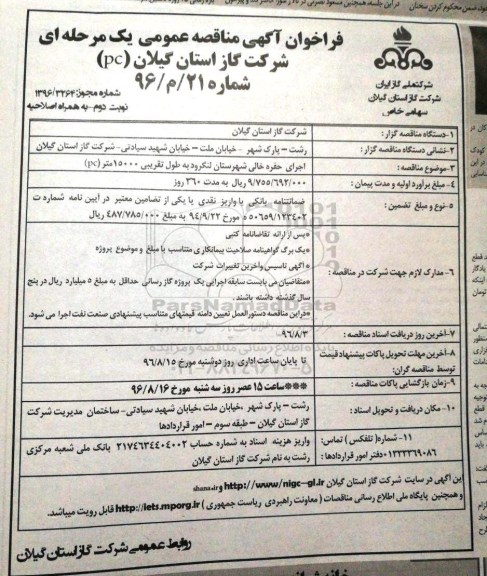 فراخوان آگهی مناقصه عمومی یک مرحله ای
شرکت گاز استان گیلان (pc)
شماره ۲۱/م/۹۶
شرکت ملی گاز ایران
شرکت گاز استان گیلان
سهامی خاص
شماره مجوز: ۱۳۹۶/۳۲۶۴
نوبت دوم- به همراه اصلاحیه
۱-دستگاه مناقصه گزار: شرکت گاز استان گیلان
۲-نشانی دستگاه مناقصه گزار: رشت – پارک شهر – خیابان ملت – خیابان شهید سیادتی- شرکت گاز استان گیلان
۳-موضوع مناقصه: اجرای حفره خالی شهرستان لنگرود به طول تقریبی ۱۵۰۰۰متر (pc)
۴- مبلغ برآورد اولیه و مدت پیمان: ۹/۷۵۵/۶۹۲/۰۰۰ ریال به مدت ۳۶۰ روز
۵-نوع و مبلغ تضمین: ضمانتنامه بانکی یا واریز نقدی یا یکی از تضامین معتبر در آیین نامه شماره ت
۵۰۶۵۹/۱۲۳۴۰۲ ه مورخ ۹۴/۹/۲۲ به مبلغ ۴۸۷/۷۸۵/۰۰۰ ریال
۶- مدارک لازم جهت شرکت در مناقصه:
*پس از ارائه تقاضانامه کتبی
*یک برگ گواهینامه صلاحیت پیمانکاری متناسب با مبلغ و موضوع پروژه
*آگهی تاسیس و آخرین تغییرات شرکت
*متقاضیان می بایست سابقه اجرایی یک پروژه گاز رسانی حداقل به مبلغ ۵ میلیارد ریال در پنج
سال گذشته داشته باشند.
*در این مناقصه دستورالعمل تعیین دامنه قیمتهای متناسب پیشنهادی صنعت نفت اجرا می شود.
۷-آخرین روز دریافت اسناد مناقصه: ۹۶/۸/۳
۸-آخرین مهلت تحویل پاکات پیشنهاد قیمت
توسط مناقصه گران:
تا پایان ساعت اداری روز دوشنبه مورخ ۹۶/۸/۱۵
۹-زمان بازگشایی پاکات مناقصه: ***ساعت ۱۵ عصر روز سه شنبه مورخ ۹۶/۸/۱۶
۱۰-مکان دریافت و تحویل اسناد: رشت – پارک شهر ،خیابان ملت ،خیابان شهید سیادتی- ساختمان مدیریت شرکت
گاز استان گیلان – طبقه سوم – امور قراردادها
۱۱-شماره( تلفکس ) تماس:
۰۱۳۳۳۳۶۹۰۸۶دفتر امور قراردادها:
واریز هزینه اسناد به شماره حساب ۲۱۷۴۶۳۴۴۰۴۰۰۲ بانک ملی شعبه مرکزی
رشت به نام شرکت گاز استان گیلان
این آگهی در سایت شرکت گاز استان گیلان http://www/nigc-gl.ir و shana.ir
و همچنین پایگاه ملی اطلاع رسانی مناقصات ( معاونت راهبردی ریاست جمهوری ) http://iets.mporg.ir قابل رویت میباشد.
روابط عمومی شرکت گاز استان گیلان
ParsNamadData
پایگاه اطلاع رسانی مناقصه و مزایده
۰۲۱-۸۸۳۴۹۶۷۰-۵